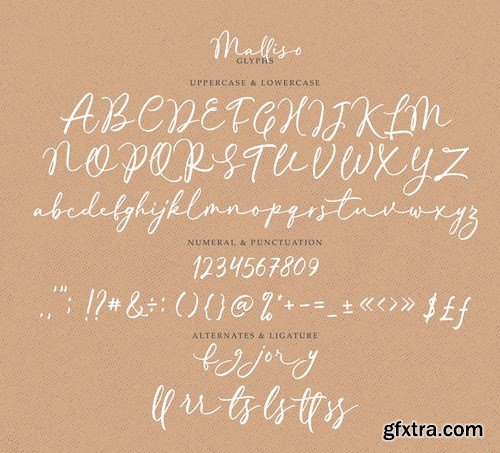 Malliso
GLYPHS
UPPERCASE & LOWERCASE
ABCDEFGHIJKLM
NOPQRSTUVWXYZ
abcdefghijklmnopqrstuvwxyz
NUMERAL & PUNCTUATION
1234567809
.,'"; !?#&÷: (){}@ %*+-=_±«<>» $£ƒ
ALTERNATES & LIGATURE
f g j o r y
ll rr ts ls tt ss
gfxtra.com